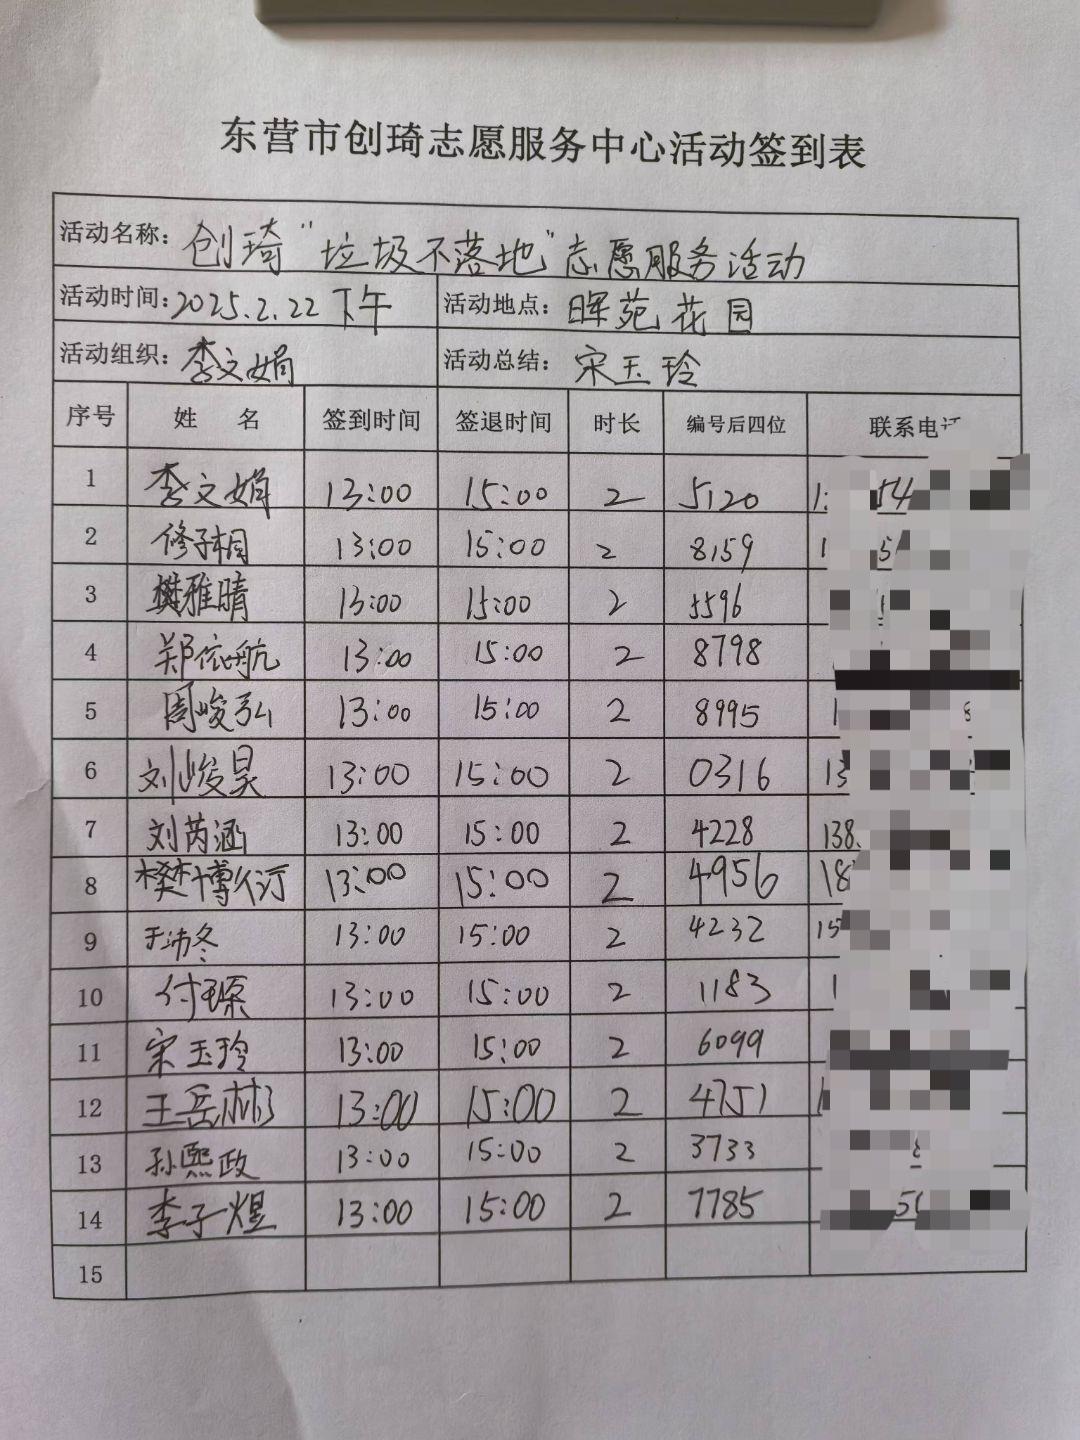 东营市创琦志愿服务中心活动签到表
活动名称：创琦“垃圾不落地”志愿服务活动
活动时间：2025.2.22下午 活动地点：晖苑花园
活动组织：李文娟 活动总结：宋玉玲
序号 姓名 签到时间 签退时间 时长 编号后四位 联系电话
1 李文娟 13:00 15:00 2 5120
2 修子桐 13:00 15:00 2 8159
3 樊雅晴 13:00 15:00 2 5596
4 郑依航 13:00 15:00 2 8798
5 周峻弘 13:00 15:00 2 8995
6 刘峻昊 13:00 15:00 2 0316
7 刘芮涵 13:00 15:00 2 4228 138
8 樊博衍 13:00 15:00 2 4956 18
9 于沛冬 13:00 15:00 2 4232 15
10 付 13:00 15:00 2 1183
11 宋玉玲 13:00 15:00 2 6099
12 王岳彬 13:00 15:00 2 4751
13 孙熙政 13:00 15:00 2 3733
14 李子煜 13:00 15:00 2 7785
15